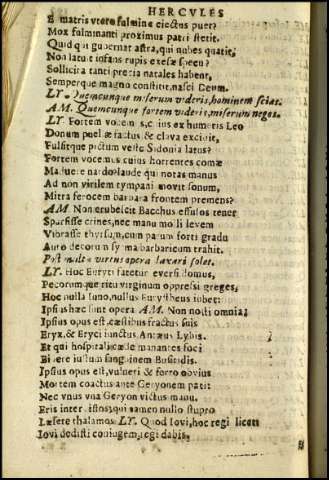 HERCVLES
E matris vtero fulmine eiectus puer?
Mox fulminanti proximus patri stetit.
Quid qui gubernat astra, qui nubes quatit,
Non latuit infans rupis exesæ specu?
Sollicita tanti pretia natales habent,
Semperque magno constitit, nasci Deum.
LY. Quemcunque miserum videris, hominem scias.
AM. Quemcunque fortem videris, miserum neges.
LY. Fortem vocem⁠us, cuius ex humeris Leo
Donum puellæ factus & claua excidit,
Fulsitque pictum veste Sidonia latus?
Fortem vocemus cuius horrentes comæ
Maduere nardo? laude qui notas manus
Ad non virilem tympani mouit sonum,
Mitra ferocem barbara frontem premens?
AM Non erubescit Bacchus effusos tener
Sparsisse crines, nec manu molli leuem
Vibrasse thyrsum, cum parum forti gradu
Auro decorum syrma barbaricum trahit.
Post multa virtus opera laxari solet.
LY. Hoc Euryti fatetur euersi domus,
Pecorumque ritu virginum oppressi greges,
Hoc nulla Iuno, nullus Eurystheus iubet:
Ipsius hæc sunt opera. AM. Non nosti omnia:
Ipsius opus est, cæstibus fractus suis
Eryx, & Eryci iunctus Antæus Lybis.
Et qui hospitali cæde manantes foci
Bibere iustum sanguinem Busiridis.
Ipsius opus est, vulneri & ferro obuius
Mortem coactus ante Geryonem pati
Nec vnus vna Geryon victus manu.
Eris inter istos, qui tamen nullo stupro
Læsere thalamos LY. Quod Ioui, hoc regi licet:
Ioui dedisti coniugem, regi dabis,